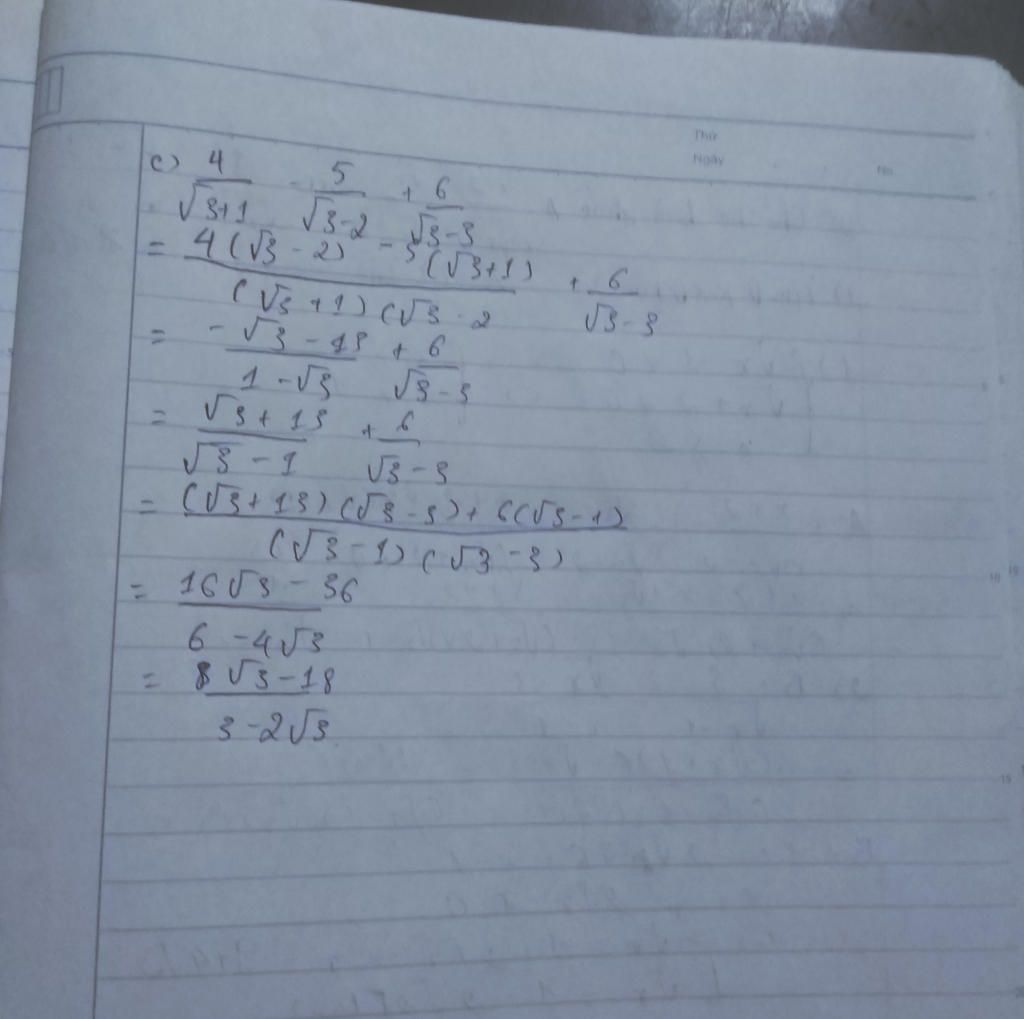 Thứ
Ngày
No.
c) 4/(√3+1) - 5/(√3-2) + 6/(√3-3)
= (4(√3-2) - 5(√3+1))/((√3+1)(√3-2) + 6/(√3-3)
= (-√3-13)/(1-√3) + 6/(√3-3)
= (√3+13)/(√3-1) + 6/(√3-3)
= ((√3+13)(√3-3)+6(√3-1))/((√3-1)(√3-3))
= (16√3-36)/(6-4√3)
= (8√3-18)/(3-2√3)